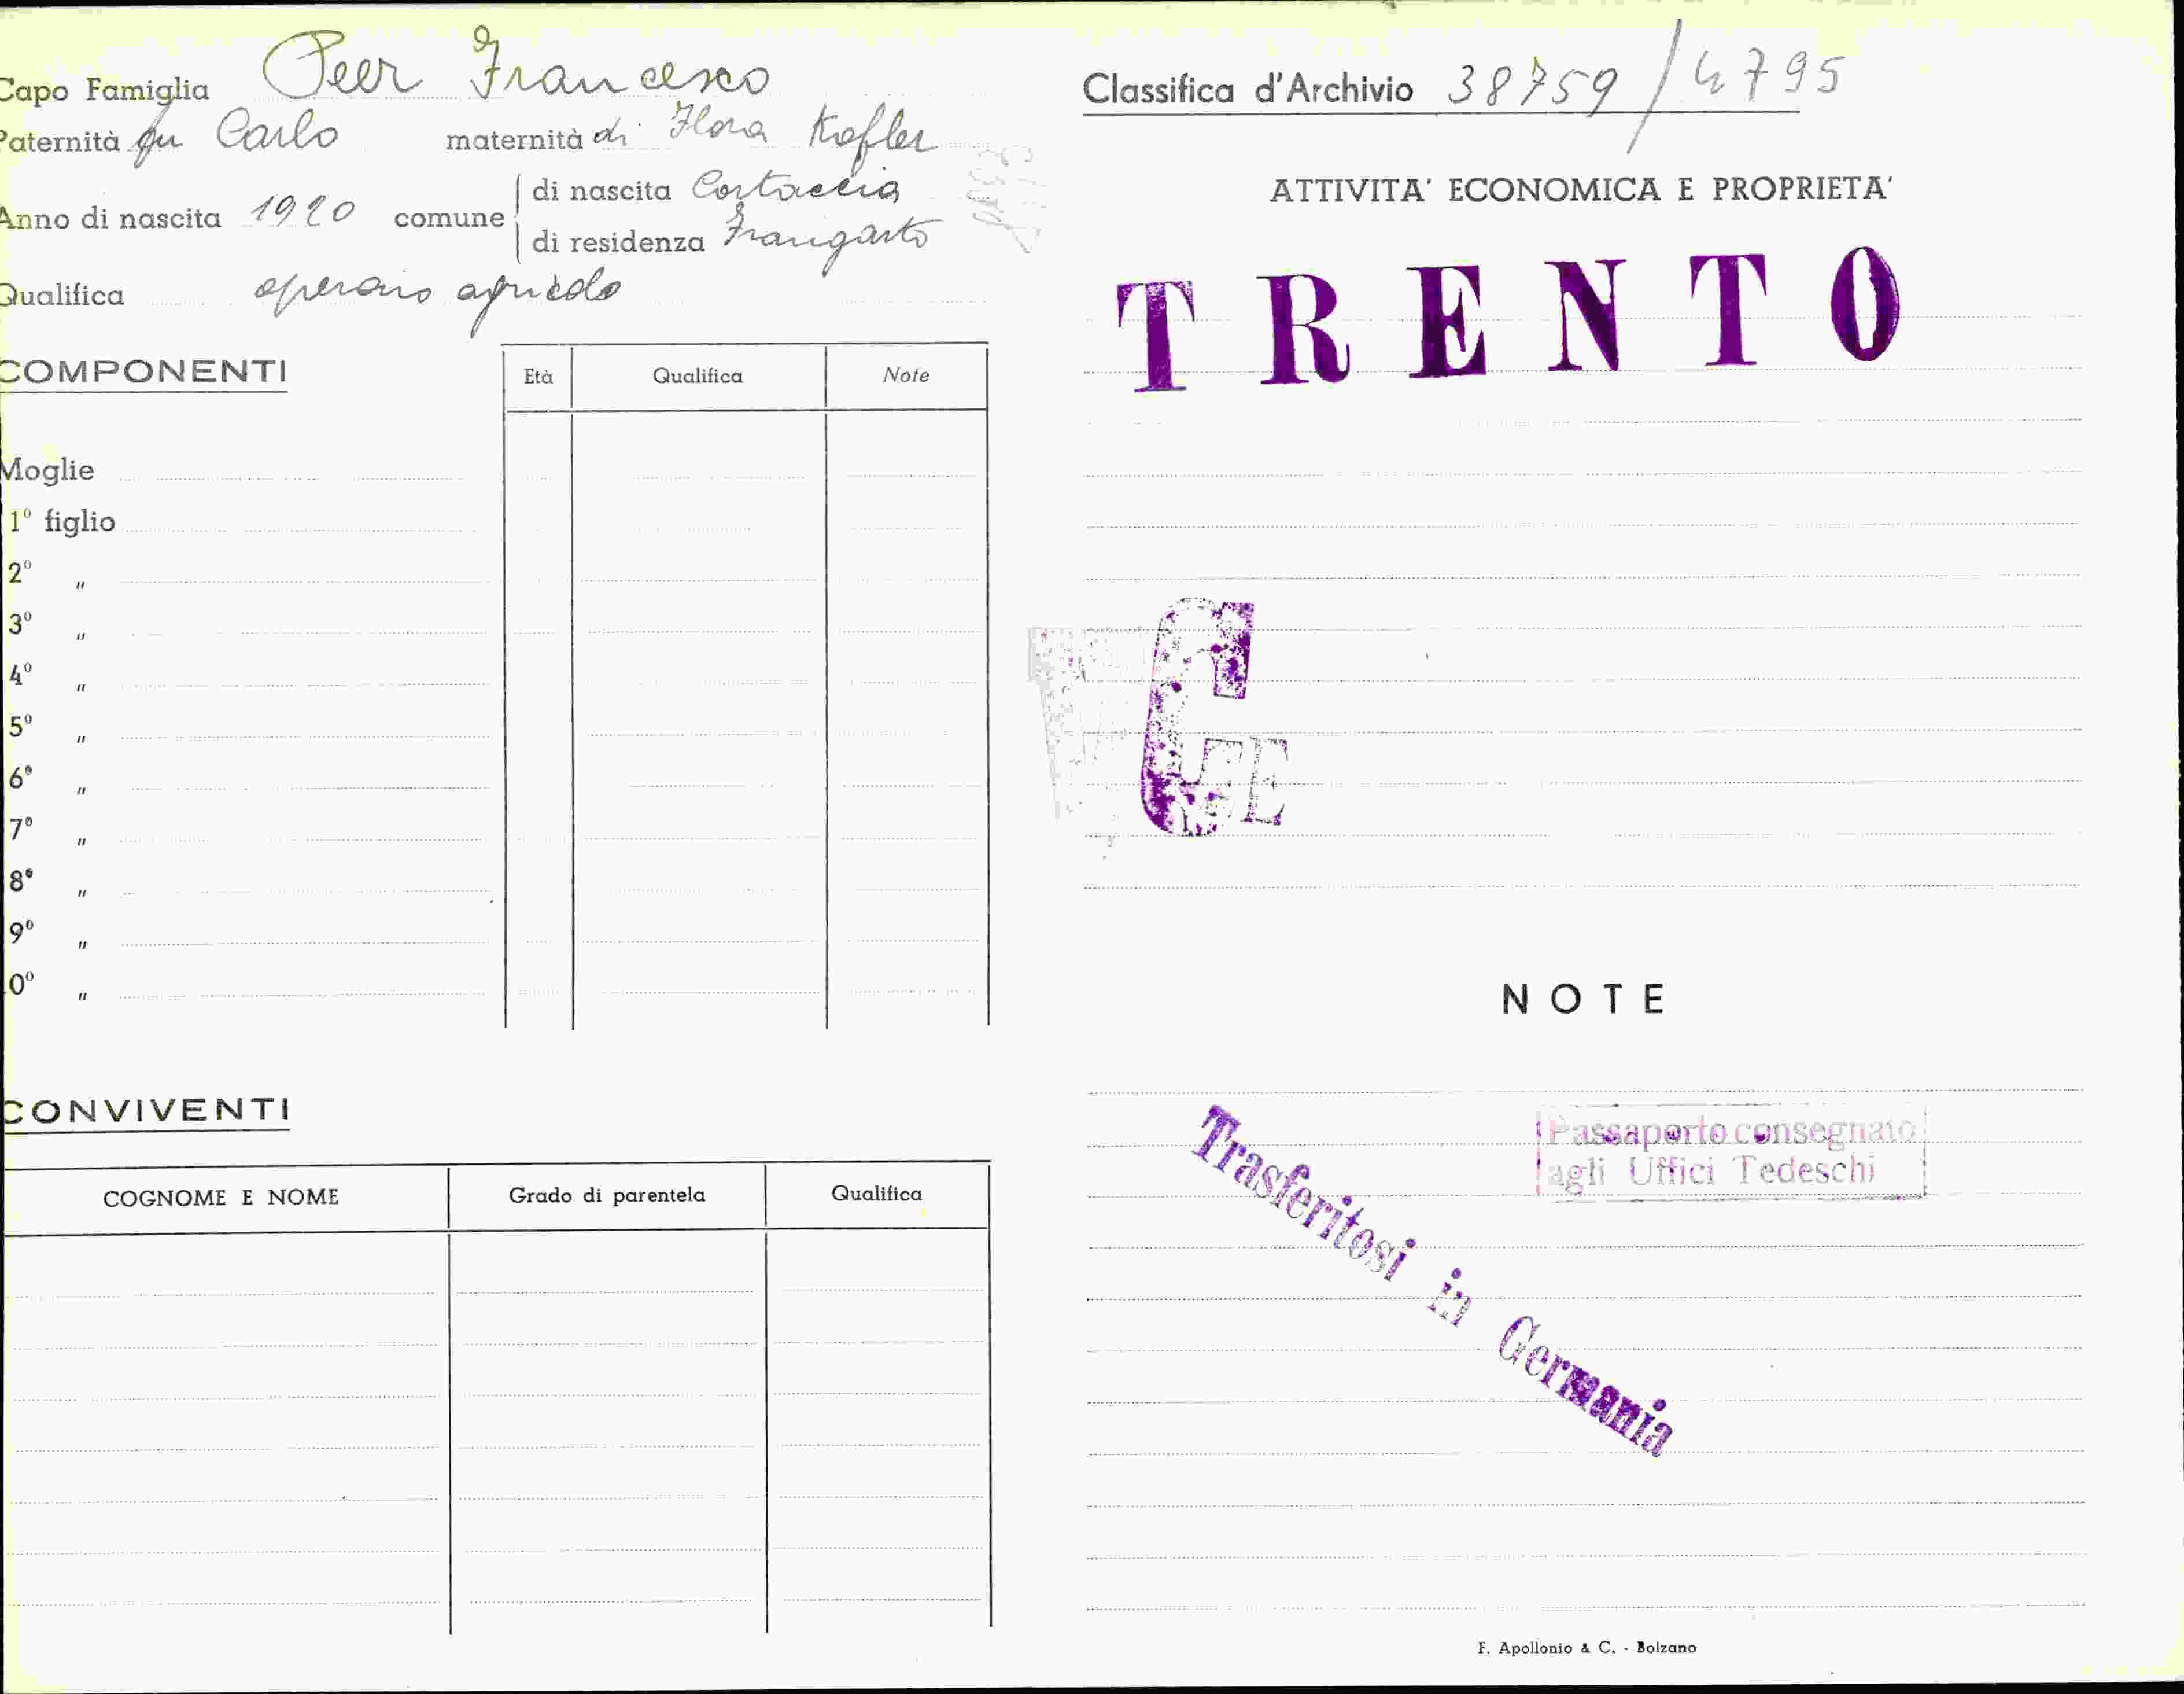 Capo Famiglia Peer Francesco
Paternità fu Carlo maternità di Flora Kofler
Anno di nascita 1920 comune di nascita Cortaccia
di residenza Frangarto
Qualifica operaio agricolo
COMPONENTI Età Qualifica Note
Moglie
1º figlio
2º "
3º "
4º "
5º "
6º "
7º "
8º "
9º "
0º "
CONVIVENTI
COGNOME E NOME Grado di parentela Qualifica
Classifica d'Archivio 38759/4795
ATTIVITA' ECONOMICA E PROPRIETA'
TRENTO
C
NOTE
Passaporto consegnato
agli Uffici Tedeschi
Trasferitosi in Germania
F. Apollonio & C. - Bolzano